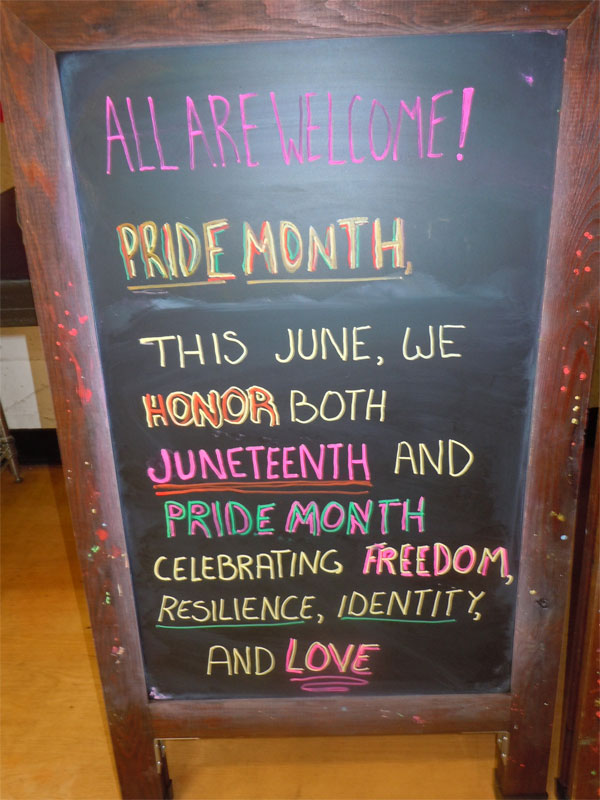 ALL ARE WELCOME!
PRIDE MONTH,
THIS JUNE, WE
HONOR BOTH
JUNETEENTH AND
PRIDE MONTH
CELEBRATING FREEDOM,
RESILIENCE, IDENTITY,
AND LOVE